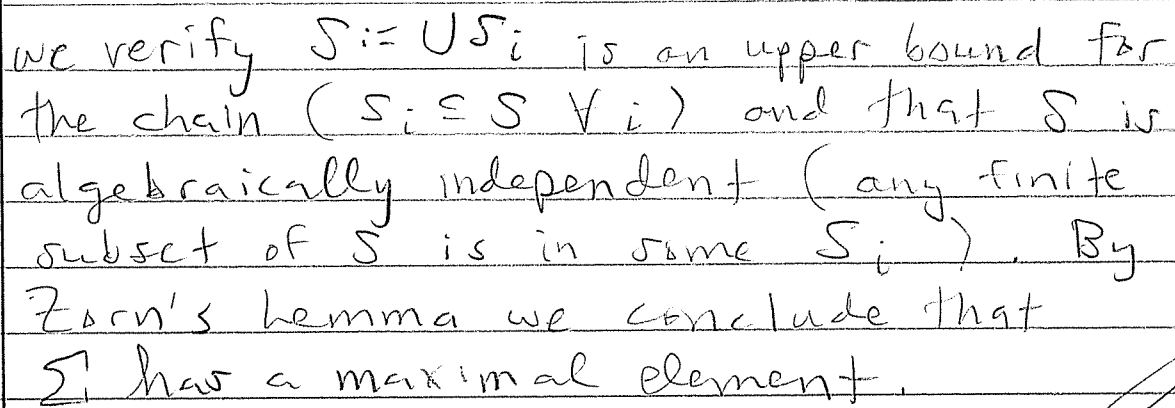 we verify S := ∪ S_i is an upper bound for
the chain ( S_i ⊆ S ∀ i ) and that S is
algebraically independent ( any finite
subset of S is in some S_i ). By
Zorn's Lemma we conclude that
Σ has a maximal element. //